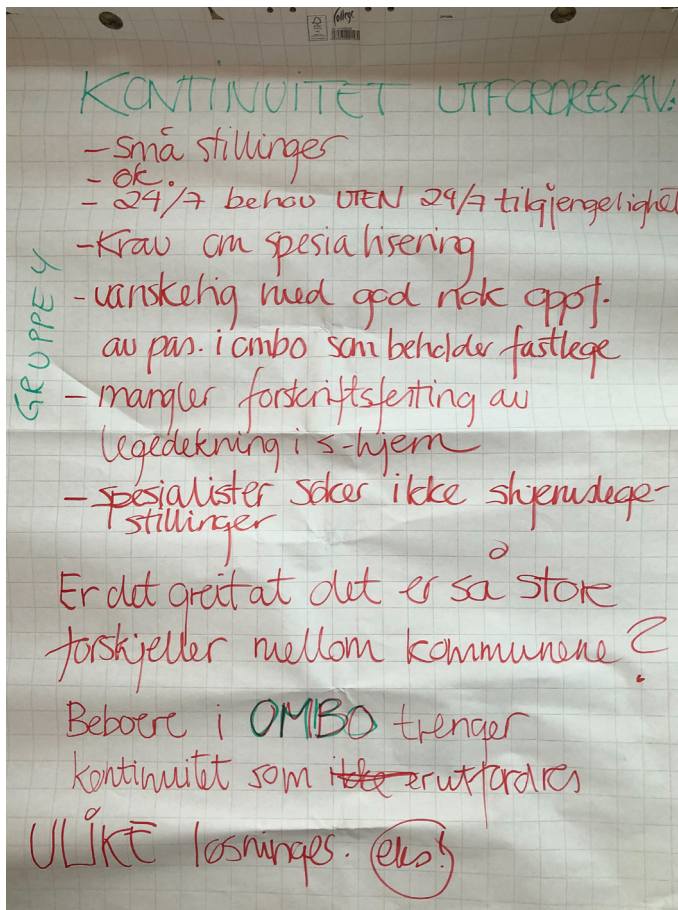 college
KONTINUITET UTFORDRES AV:
GRUPPE 4
- små stillinger
- øk.
- 24/7 behov UTEN 24/7 tilgjengelighet
- Krav om spesialisering
- vanskelig med god nok oppf.
av pas. i ombo som beholder fastlege
- mangler forskriftsfesting av
legedekning i s-hjem
- spesialister søker ikke shjemslege-
stillinger
Er det greit at det er så store
forskjeller mellom kommunene?
Beboere i OMBO trenger
kontinuitet som ikke er utfordres
ULIKE løsninger. eks!